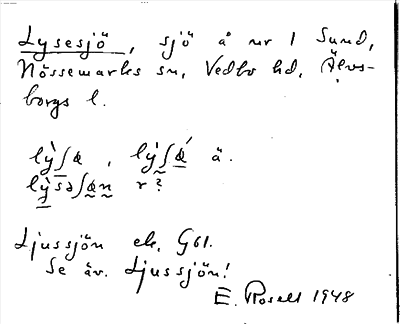 Lysesjö, sjö å nr 1 Sund,
Nössemarks sn, Vedbo hd, Älvs-
borgs l.
lỳʃæ, lỳʃǽ ä.
lỳsəʃæn r?
Ljussjön ek. G61.
Se äv. Ljussjön!
E. Rosell 1948